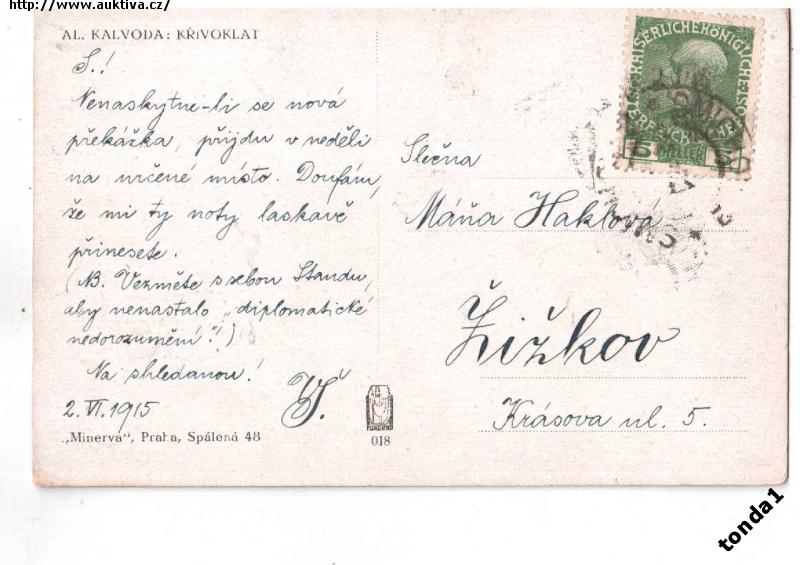 http://www.auktiva.cz/
AL. KALVODA: KŘIVOKLAT
S.!
Nenaskytne-li se nová
překážka, přijdu v neděli
na určené místo. Doufám,
že mi ty noty laskavě
přinesete.
(NB. Vezměte s sebou Standu,
aby nenastalo „diplomatické
nedorozumění"!)
Na shledanou!
2. VI. 1915
„Minerva", Praha, Spálená 48
018
Slečna
Máňa Haklová
Žižkov
Krásova ul. 5.
KAISERLICHE KÖNIGLICHE
5
tonda1